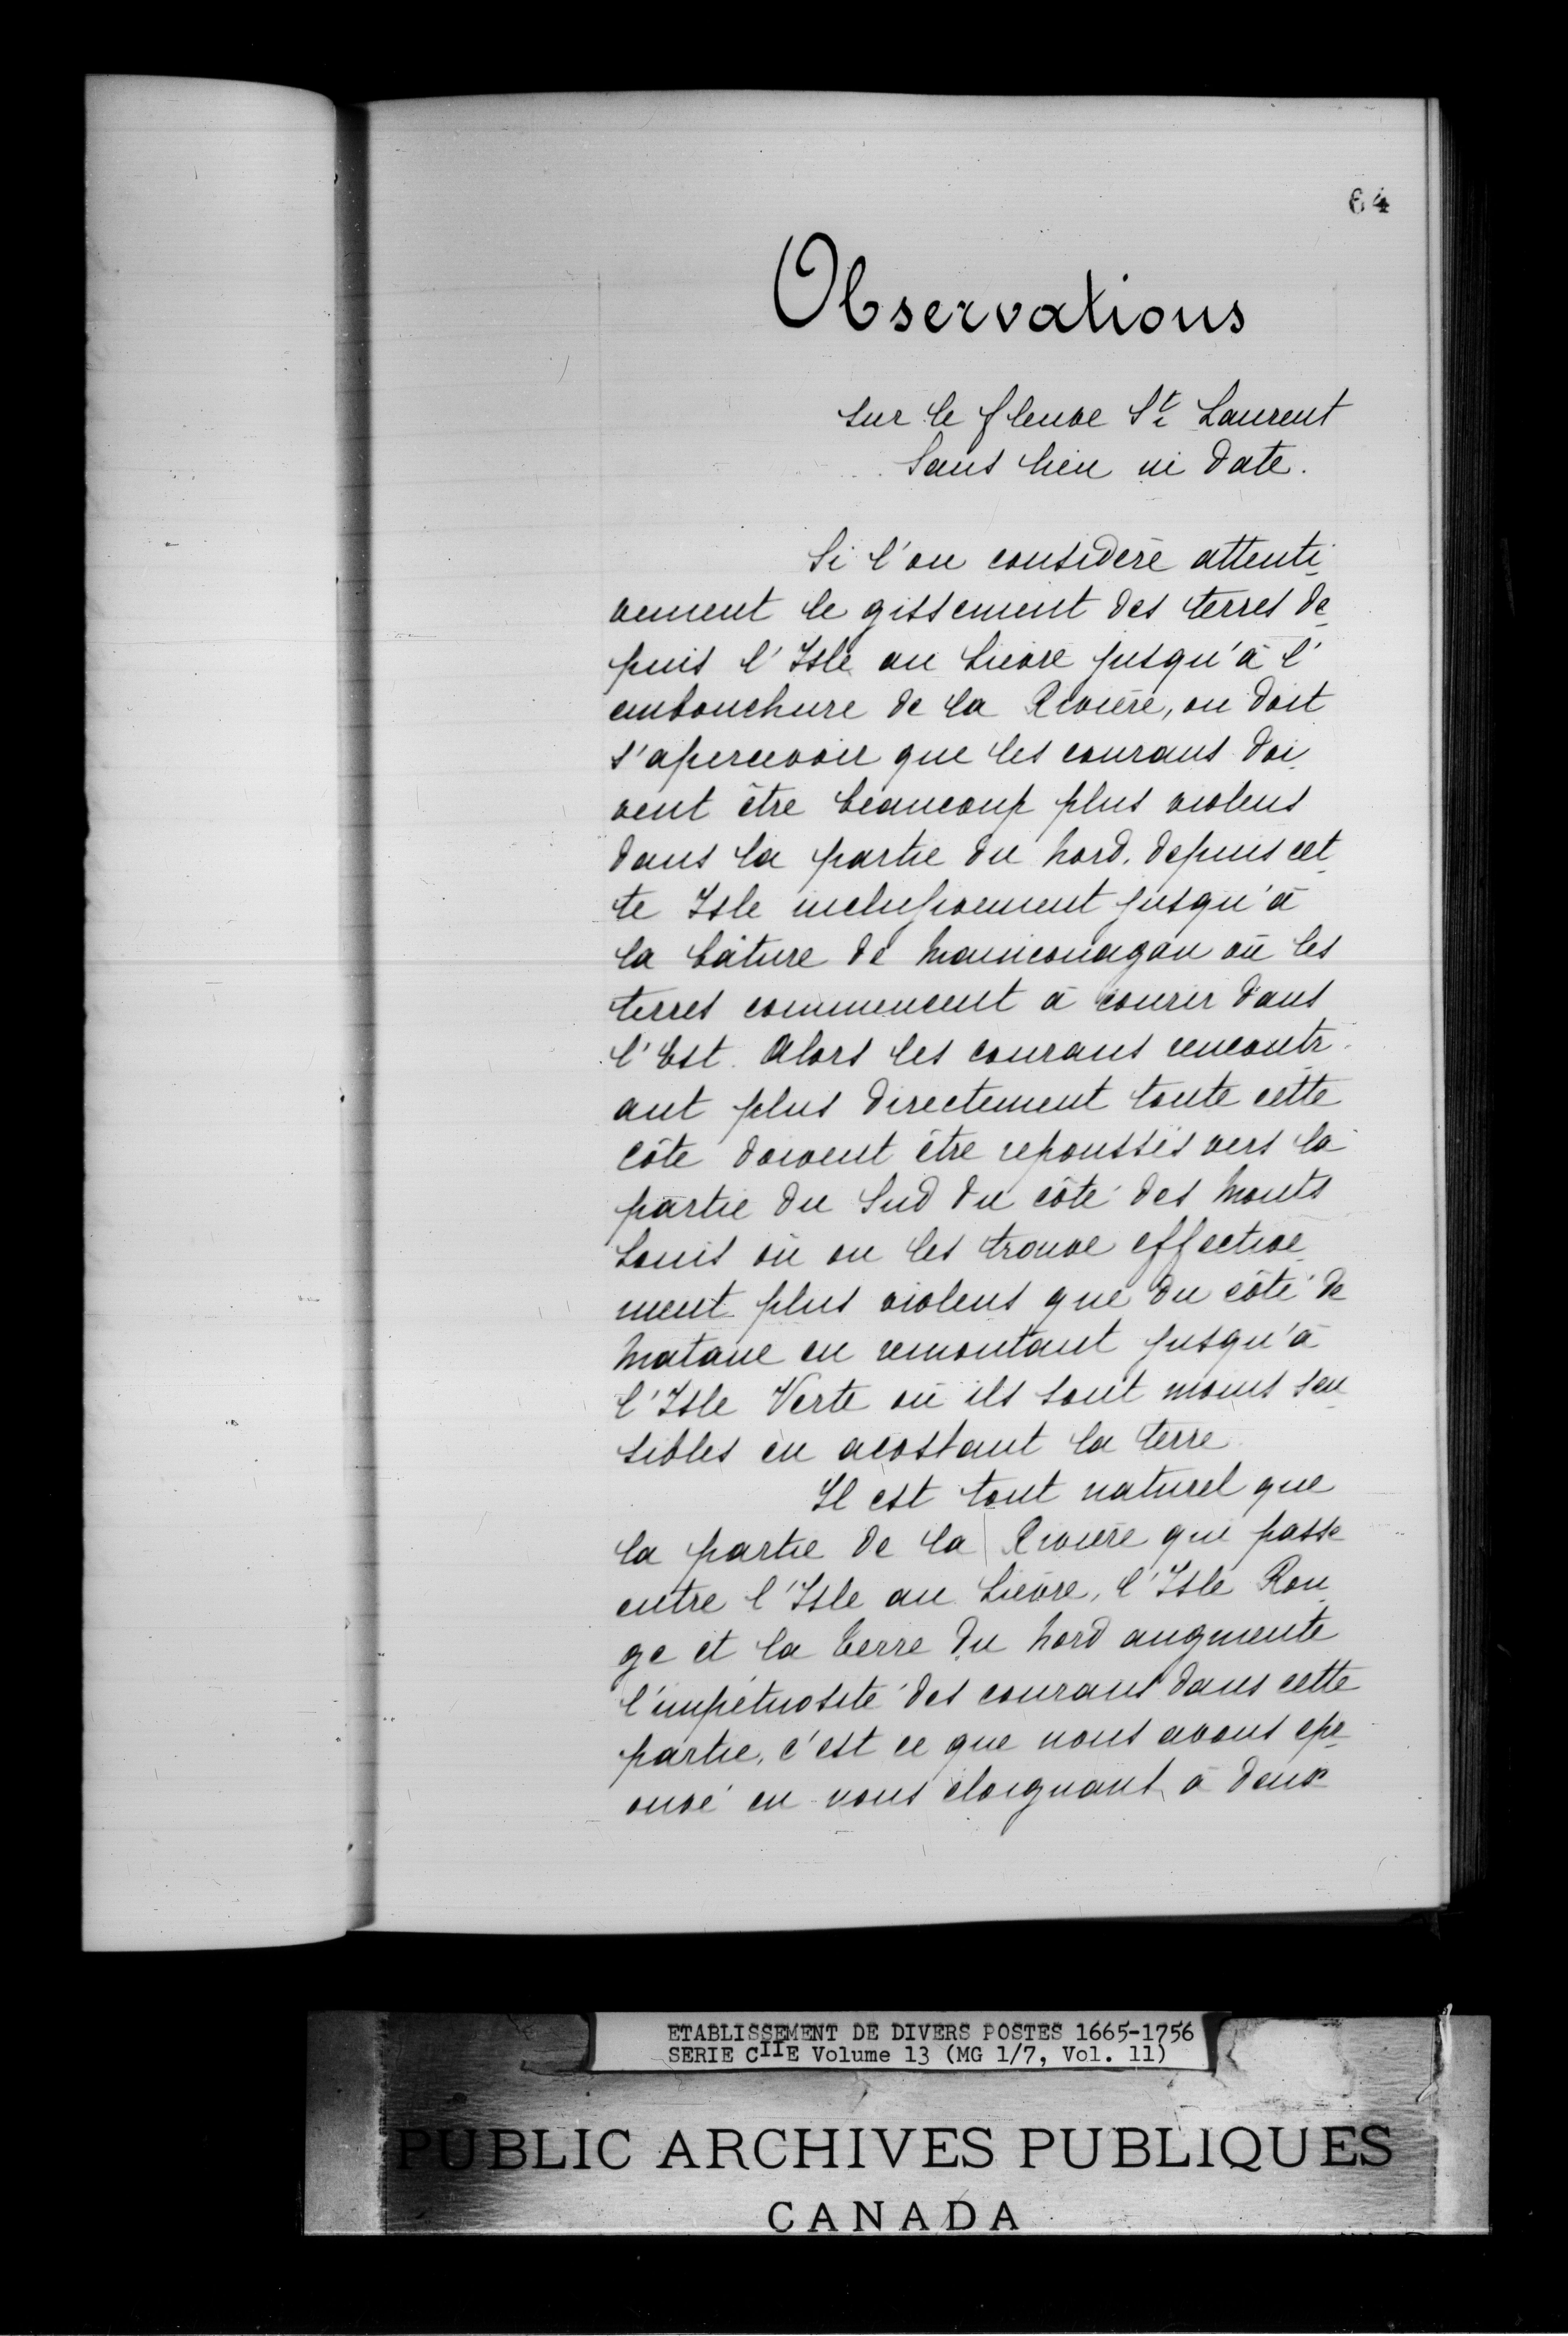 64
Observations
sur le fleuve St. Laurent
Sans lieu ni date.
Si l'on considère attenti-
vement le gissement des terres de-
puis l'Isle au Lièvre jusqu'à l'
embouchure de la Rivière, on doit
s'apercevoir que les courans doi-
vent être beaucoup plus violens
dans la partie du Nord, depuis cet-
te Isle inclusivement jusqu'à
la bâture de Manicouagan où les
terres commencent à courir dans
l'Est. Alors les courans rencontr-
ant plus directement toute cette
côte doivent être repoussés vers la
partie du Sud du côté des Monts
Louis où on les trouve effective-
ment plus violens que du côté de
Matane en remontant jusqu'à
l'Isle Verte où ils sont moins sen-
sibles en acostant la terre.
Il est tout naturel que
la partie de la Rivière qui passe
entre l'Isle au Lièvre, l'Isle Rou-
ge et la terre du Nord augmente
l'impétuosité des courans dans cette
partie, c'est ce que nous avons epr-
ouvé en nous eloignant à deux
ETABLISSEMENT DE DIVERS POSTES 1665-1756
SERIE CIIE Volume 13 (MG 1/7, Vol. 11)
PUBLIC ARCHIVES PUBLIQUES
CANADA